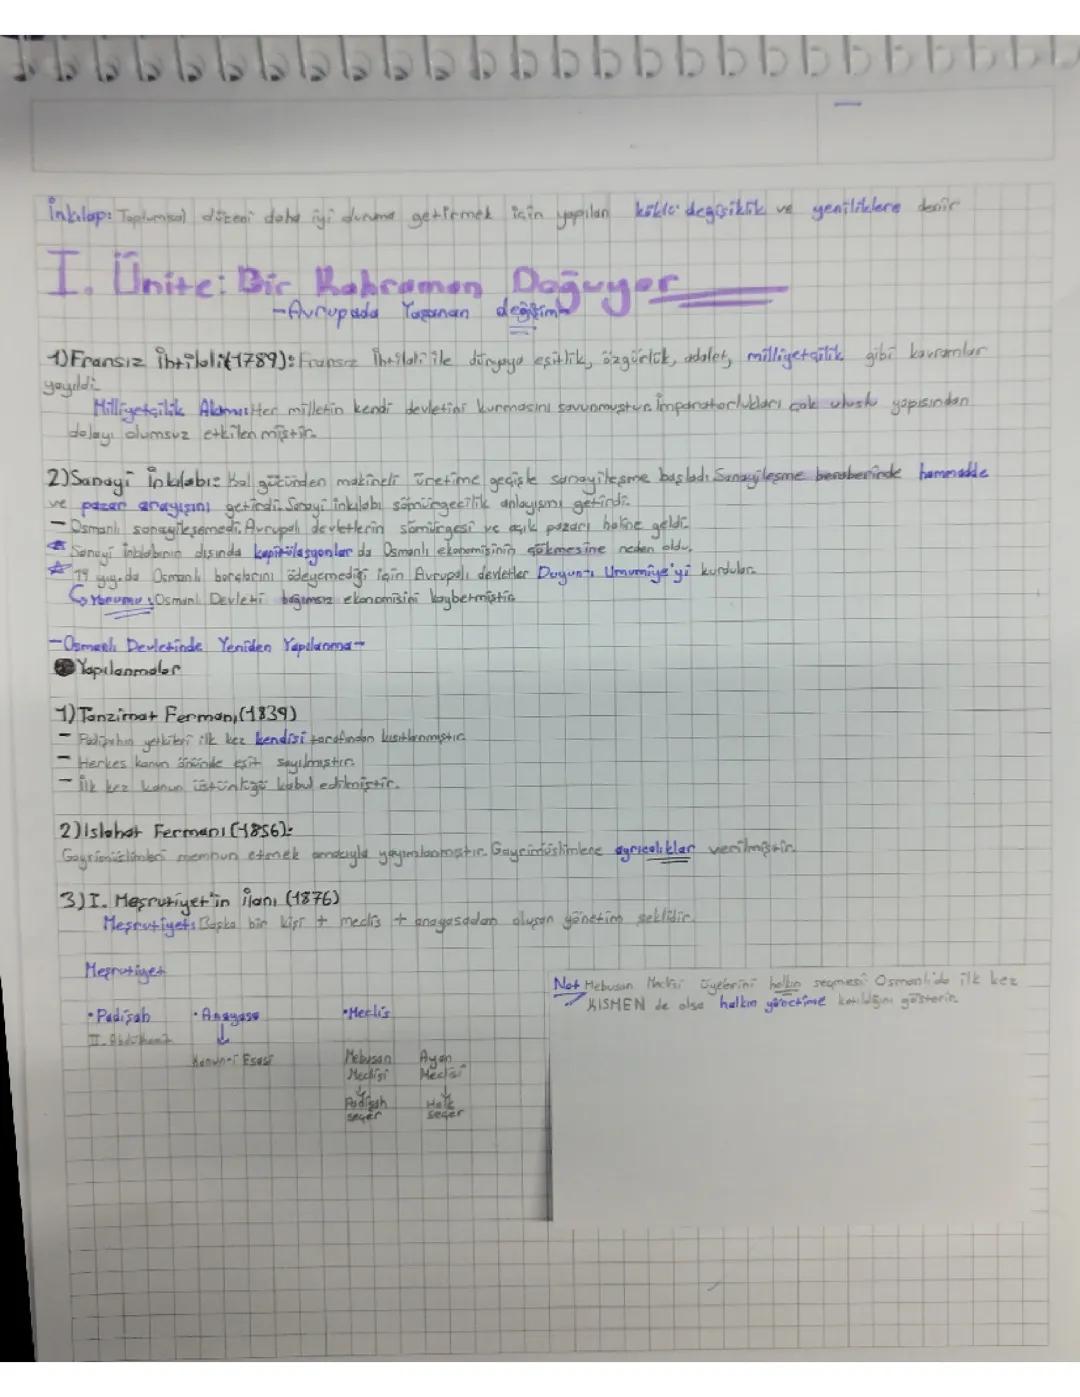 İnkılap: Toplumsal düzeni daha iyi duruma getirmek için yapılan köklü değişiklik ve yeniliklere denir
I. Ünite: Bir Kahraman Doğuyor
-Avrupada Yaşanan değişim-
1)Fransız İhtilali(1789): Fransız İhtilali ile dünyaya eşitlik, özgürlük, adalet, milliyetçilik gibi kavramlar
yayıldı.
Milliyetçilik Akımı: Her milletin kendi devletini kurmasını savunmuştur. İmparatorlukları çok uluslu yapısından
dolayı olumsuz etkilenmiştir.
2)Sanayi İnkılabı: Kol gücünden makineli üretime geçişle sanayileşme başladı. Sanayileşme beraberinde hammadde
ve pazar arayışını getirdi. Sanayi inkılabı sömürgecilik anlayışını getirdi.
- Osmanlı sanayileşemedi. Avrupalı devletlerin sömürgesi ve açık pazarı haline geldi.
Sanayi inkılabının dışında kapitülasyonlar da Osmanlı ekonomisinin çökmesine neden oldu.
19 yy.da Osmanlı borçlarını ödeyemediği için Avrupalı devletler Duyun-ı Umumiye'yi kurdular.
Yorumu: Osmanlı Devleti bağımsız ekonomisini kaybetmiştir.
-Osmanlı Devletinde Yeniden Yapılanma-
Yapılanmalar
1)Tanzimat Fermanı(1839)
- Padişahın yetkileri ilk kez kendisi tarafından kısıtlanmıştır.
- Herkes kanun önünde eşit sayılmıştır.
- İlk kez kanun üstünlüğü kabul edilmiştir.
2)Islahat Fermanı(1856):
Gayrimüslimleri memnun etmek amacıyla yayımlanmıştır. Gayrimüslimlere ayrıcalıklar verilmiştir.
3)I. Meşrutiyet'in ilanı (1876)
Meşrutiyet: Başka bir kişi + meclis + anayasadan oluşan yönetim şeklidir.
Meşrutiyet
• Padişah • Anayasa • Meclis
II. Abdülhamit
Kanun-i Esasi
Mebusan Ayan
Meclisi Meclisi
Padişah Halk
seçer seçer
Not Mebusan Meclisi üyelerini halkın seçmesi Osmanlı'da ilk kez
KISMEN de olsa halkın yönetime katıldığını gösterir.